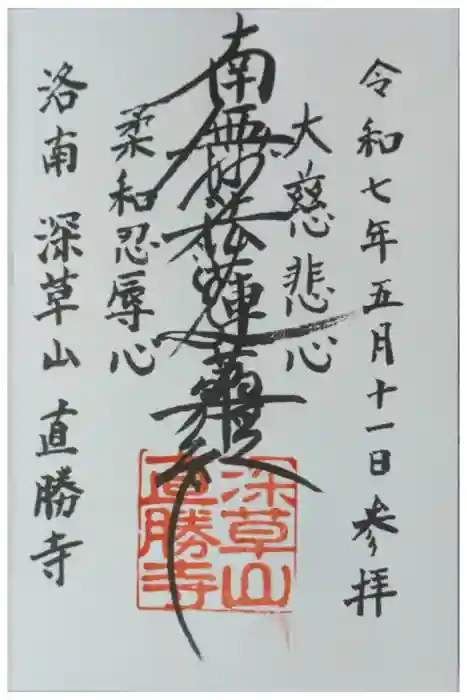 令和七年五月十一日 参拝
大慈悲心
南無妙法蓮華経
柔和忍辱心
洛南 深草山 直勝寺
深草山
直勝寺